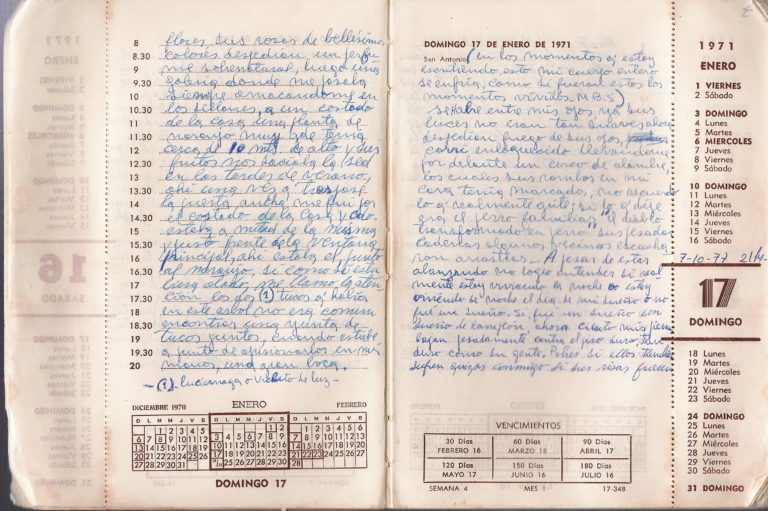 8 flores, sus rosas de bellísimos
8.30 colores despedían un perfu
9 me sobrenatural, luego una
9.30 galería donde me posaba
10 siempre amacandome en
10.30 los sillones, a un costado
11 de la casa una planta de
11.30 naranjo muy que tenía
12 cerca de 10 mts. de alto y sus
12.30 frutos nos saciaba la sed
13 en las tardes de verano,
13.30 ahí una vés a tras pose
14 la puerta, ancha me fui por
14.30 el costado de la casa y cdo.
15 estaba a mitad de la misma
15.30 y justo frente de la ventana
16 principal, ahí estaba el, junto
16.30 al naranjo, si como si estu
17 biera atado, me llamo la aten
17.30 ción los dos (1) tucos q' había
18 en este arbol no era comun
18.30 encontrar una yunta de
19 tucos juntos, cuando estube
19.30 a punto de aprisionarlos en mis
20 manos, una gran boca.
(1) Luciernaga o Vichito de luz -
DICIEMBRE 1970 ENERO FEBRERO
DOMINGO 17
DOMINGO 17 DE ENERO DE 1971
San Antonio (en los momentos q' estoy
escribiendo esto mi cuerpo entero
se enfría, como si fueran estos los
momentos vividos M.B.S.)
se habre ante mis ojos ya sus
luces no eran tan suaves ahora
despedían fuego de sus ojos,
corrí enloquecido llevandome
por delante un cerco de alambre,
los cuales sus rombos en mi
cara tenía marcados, no recuerdo
lo q' realmente grité; si lo q' dije
era el perro familiar, "el diablo
transformado en perro" sus pesadas
cadenas algunos vecinos escucha
ron arrastrar. A pesar de estar
alcanzando no logro entender si real
mente estoy viviendo la noche o estoy
viviendo de noche el día de mi sueño o no
fue un sueño. Si, fue un sueño con
sueño de campeón, ahora cuanto mis piern
bajan pesadamente contra el piso duro, tan
duro como su gente. Pobres si ellos tambien
sufren quizas conmigo si sus risas fueran
7-10-77 21hs.
VENCIMIENTOS
30 Días 60 Días 90 Días
FEBRERO 16 MARZO 18 ABRIL 17
120 Días 150 Días 180 Días
MAYO 17 JUNIO 16 JULIO 16
SEMANA 4 MES 1 17-348
1971
ENERO
1 VIERNES
2 Sábado
3 DOMINGO
4 Lunes
5 Martes
6 MIERCOLES
7 Jueves
8 Viernes
9 Sábado
10 DOMINGO
11 Lunes
12 Martes
13 Miércoles
14 Jueves
15 Viernes
16 Sábado
17
DOMINGO
18 Lunes
19 Martes
20 Miércoles
21 Jueves
22 Viernes
23 Sábado
24 DOMINGO
25 Lunes
26 Martes
27 Miércoles
28 Jueves
29 Viernes
30 Sábado
31 DOMINGO